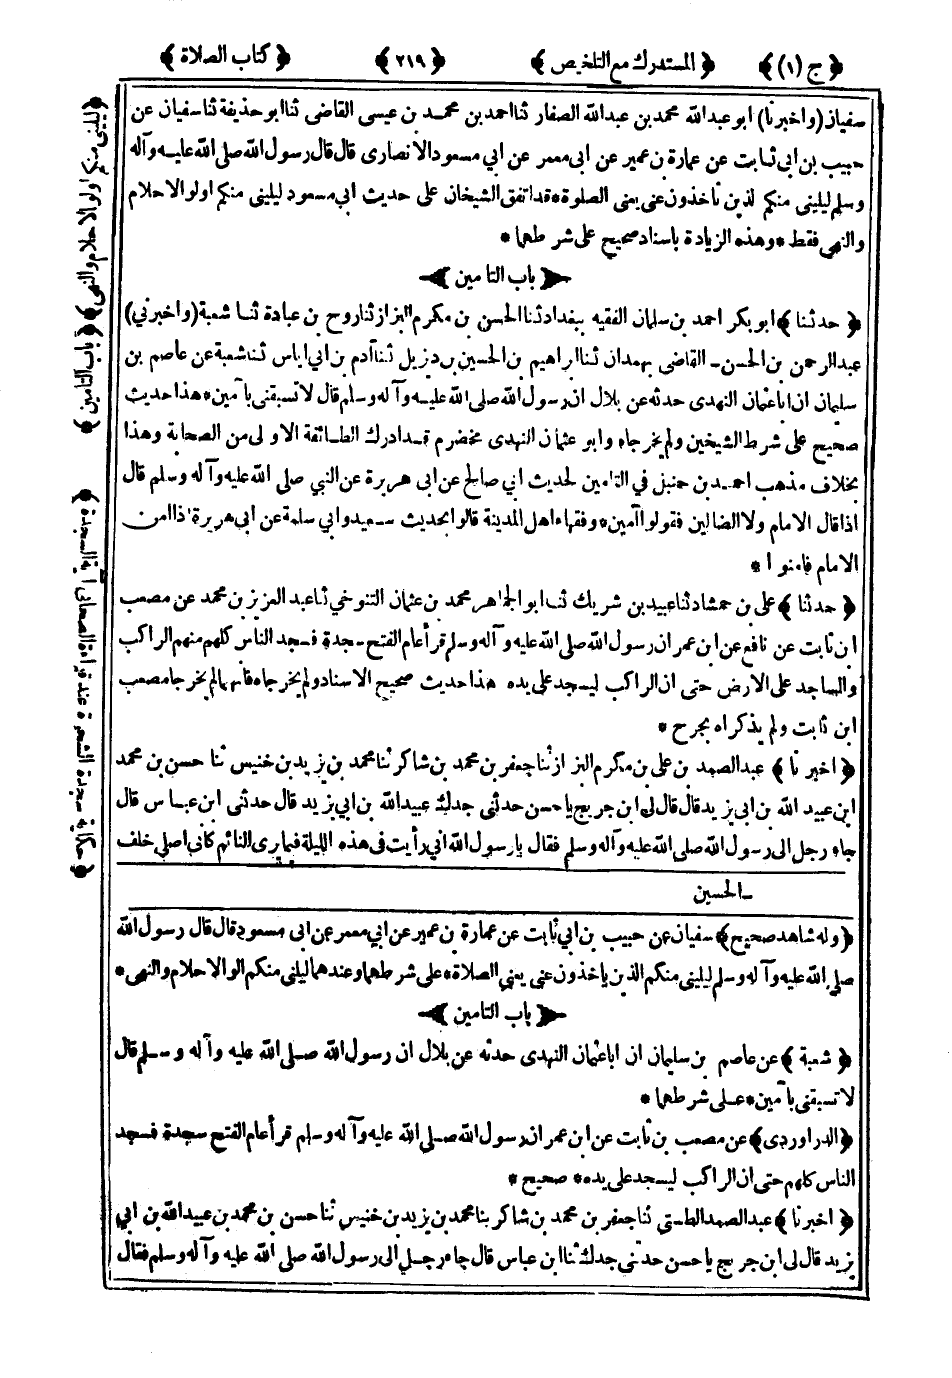 ﴿ ج (١) ﴾ ﴿ المستدرك مع التلخيص ﴾ ﴿ ٢١٩ ﴾ ﴿ كتاب الصلاة ﴾
سفيان (واخبرنا) ابو عبد الله محمد بن عبد الله الصفار ثنا احمد بن محمد بن عيسى القاضى ثنا ابو حذيفة ثنا سفيان عن
حبيب بن ابى ثابت عن عمارة بن عمير عن ابى معمر عن ابي مسعود الانصارى قال قال رسول الله صلى الله عليه وآله
وسلم ليلينى منكم الذين يأخذون عنى يعنى الصلوة * قد اتفق الشيخان على حديث ابي مسعود ليلينى منكم اولو الاحلام
والنهى فقط * وهذه الزيادة باسناد صحيح على شرطهما *
﴿ باب التامين ﴾
﴿ حدثنا ﴾ ابو بكر احمد بن سلمان الفقيه ببغداد ثنا الحسن بن مكرم البزاز ثنا روح بن عبادة ثنا شعبة (واخبرني)
عبد الرحمن بن الحسن ـ القاضى بهمدان ثنا ابراهيم بن الحسين بن دزيل ثنا آدم بن ابى اياس ثنا شعبة عن عاصم بن
سليمان ان ابا عثمان النهدى حدثه عن بلال ان رسول الله صلى الله عليه وآله وسلم قال لا تسبقنى بآمين * هذا حديث
صحيح على شرط الشيخين ولم يخرجاه وابو عثمان النهدى مخضرم قد ادرك الطائفة الاولى من الصحابة وهذا
بخلاف مذهب احمد بن حنبل في التامين لحديث ابي صالح عن ابى هريرة عن النبي صلى الله عليه وآله وسلم قال
اذا قال الامام ولا الضالين فقولوا آمين * وفقهاء اهل المدينة قالوا بحديث سعيد وابي سلمة عن ابى هريرة اذا امن
الامام فامنوا *
﴿ حدثنا ﴾ على بن حمشاد ثنا عبيد بن شريك ثنا ابو الجماهر محمد بن عثمان التنوخي ثنا عبد العزيز بن محمد عن مصعب
ابن ثابت عن نافع عن ابن عمر ان رسول الله صلى الله عليه وآله وسلم قرأ عام الفتح سجدة فسجد الناس كلهم منهم الراكب
والساجد على الارض حتى ان الراكب ليسجد على يده هذا حديث صحيح الاسناد ولم يخرجاه فانهما لم يخرجا مصعب
ابن ثابت ولم يذكراه بجرح *
﴿ اخبرنا ﴾ عبد الصمد بن على بن مكرم البزاز ثنا جعفر بن محمد بن شاكر ثنا محمد بن يزيد بن خنيس ثنا حسن بن محمد
ابن عبيد الله بن ابى يزيد قال قال لى ابن جريج يا حسن حدثنى جدك عبيد الله بن ابى يزيد قال حدثنى ابن عباس قال
جاء رجل الى رسول الله صلى الله عليه وآله وسلم فقال يا رسول الله انى رأيت فى هذه الليلة فيما يرى النائم كانى اصلى خلف
ـ الحسين
﴿ وله شاهد صحيح ﴾ سفيان عن حبيب بن ابي ثابت عن عمارة بن عمير عن ابي معمر عن ابى مسعود قال قال رسول الله
صلى الله عليه وآله وسلم ليلينى منكم الذين ياخذون عنى يعنى الصلاة * على شرطهما وعندهما ليلينى منكم الوالاحلام والنهى *
﴿ باب التامين ﴾
﴿ شعبة ﴾ عن عاصم بن سليمان ان ابا عثمان النهدى حدثه عن بلال ان رسول الله صلى الله عليه وآله وسلم قال
لا تسبقنى بآمين * على شرطهما *
﴿ الدراوردى ﴾ عن مصعب بن ثابت عن ابن عمر ان رسول الله صلى الله عليه وآله وسلم قرأ عام الفتح سجدة فسجد
الناس كلهم حتى ان الراكب ليسجد على يده * صحيح *
﴿ اخبرنا ﴾ عبد الصمد الطستى ثنا جعفر بن محمد بن شاكر ثنا محمد بن يزيد بن خنيس ثنا حسن بن محمد بن عبيد الله بن ابي
يزيد قال لى ابن جريج يا حسن حدثنى جدك ثنا ابن عباس قال جاء رجل الى رسول الله صلى الله عليه وآله وسلم فقال
﴿ ليلينى منكم اولو الاحلام والنهى ﴾ ﴿ باب التامين ﴾
﴿ حكاية سجدة الشجرة عند قراءة الصحابى آية السجدة ﴾